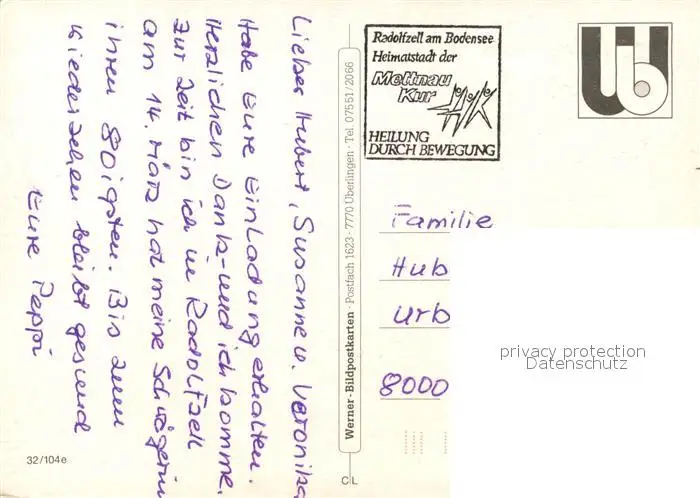 Lieber Hubert, Susanne u. Veronika,
Habe Eure Einladung erhalten.
Herzlichen Dank – und ich komme.
Zur Zeit bin ich in Radolfzell
am 14. März hat meine Schwägerin
ihren 80igsten. Bis zum
Wiedersehen bleibt gesund
Eure Peppi
32/104e
Werner-Bildpostkarten · Postfach 1623 · 7770 Überlingen · Tel. 07551/2066
CL
Radolfzell am Bodensee
Heimatstadt der
Mettnau
Kur
HEILUNG
DURCH BEWEGUNG
Familie
Hub
Urb
8000
privacy protection
Datenschutz